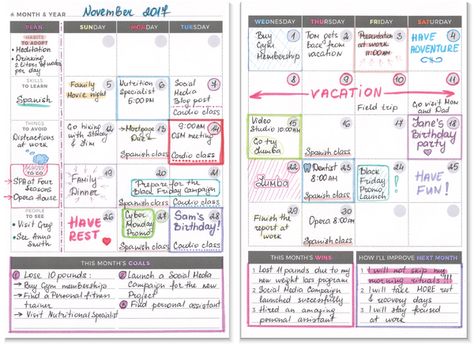 MONTH & YEAR November 2017
SUNDAY MONDAY TUESDAY
HABITS
TO ADOPT
• Meditation
• Drinking
2 Liters of water
per day
SKILLS
TO LEARN
Spanish
THINGS
TO AVOID
Distractions
at work
PLACES
TO GO
• SPA at Four
Seasons
• Opera House
PEOPLE
TO SEE
• Visit Greg
• See Aunt
Smith
5
Family
Movie night
6
Nutrition
Specialist
6:00AM
7
Social
Media
Blog post
Cardio class
12
Go hiking
with Stacey
& Jim
13
→ Mortgage
Due
Spanish class
14
9:00AM
GSM meeting
Cardio class
19
Family
Dinner
20
21
Prepare for the
Black Friday Campaign
Spanish class
Cardio class
26
HAVE
REST
27
Cyber
Monday
Promo
Spanish class
28
Sam's
Birthday!
Cardio class
THIS MONTH'S GOALS
1 Lose 10 pounds:
→ Buy Gym membership
→ Find a Personal Fitness
trainer
→ Visit Nutritional Specialist
2 Launch a Social Media
Campaign for the new
Project
3 Find personal assistant
WEDNESDAY THURSDAY FRIDAY SATURDAY
1
Buy
Gym
Membership
2
Tom gets
back from
vacation
3
Presentation
at work
11:00AM
4
HAVE
ADVENTURE
8
9
10
11
VACATION
Field trip
Go visit Mom
and Dad
15
Video
Studio 10:00AM
Go try
Zumba
16
Spanish class
17
18
Jane's
Birthday
party
22
Zumba
23
Dentist
8:00AM
Spanish class
24
Black
Friday
Promo
Launch
25
HAVE
FUN!
29
Finish the
report at
work
30
Opera 8:00PM
Spanish class
THIS MONTH'S WINS
1 Lost 11 pounds due to my
new weight loss program
2 Social Media Campaign
launched successfully
3 Hired an amazing
personal assistant
HOW I'LL IMPROVE NEXT MONTH
1 I will not skip my
morning rituals!!!
2 I will take MORE rest
& recovery days
3 I will stay focused
at work